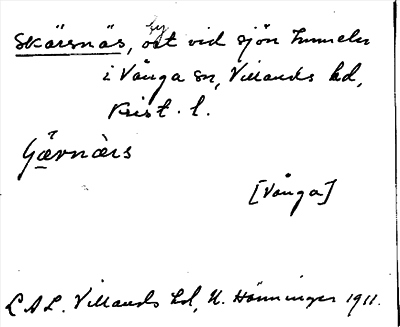 Skärsnäs, by öst vid sjön Immeln
i Vånga sn, Villands hd,
Krist. l.
[Vånga]
L A L. Villands hd, N. Hänninger 1911.